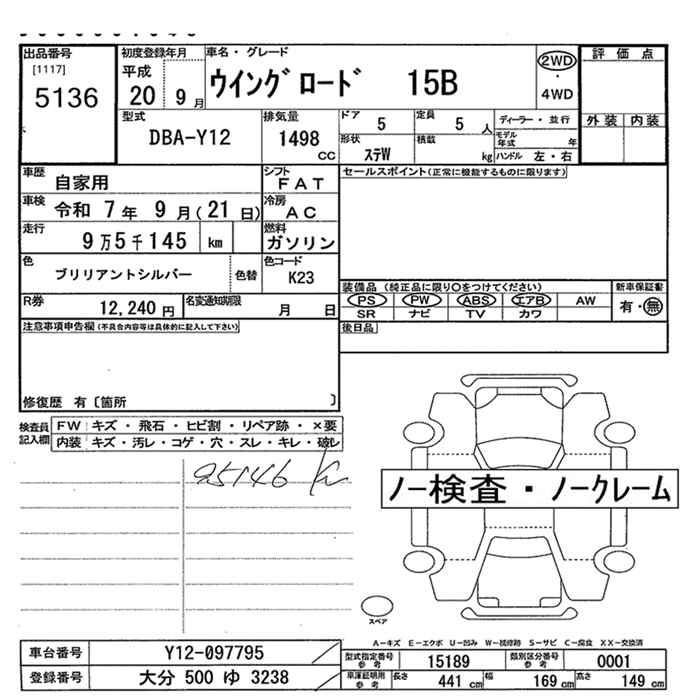 出品番号 初度登録年月 車名・グレード 評価点
[1117] 平成 2WD
5136 20 9月 ウイングロード 15B ・
4WD
型式 排気量 ドア 5 定員 5人 ディーラー・並行 外装 内装
DBA-Y12 1498cc 形状 ステW 積載 kg モデル年式 年
ハンドル 左・右
車歴 自家用 シフト FAT セールスポイント(正常に機能するものに限ります)
車検 令和 7年 9月(21日) 冷房 AC
走行 9万5千145 km 燃料 ガソリン
色 ブリリアントシルバー 色替 色コード K23
装備品(純正品に限り○をつけてください) 新車保証書
R券 12,240円 名変通知期限 月 日 PS PW ABS エアB AW 有・無
SR ナビ TV カワ
注意事項申告欄(不具合内容等は具体的に記入して下さい) 後日品
修復歴 有〔箇所 〕
検査員記入欄 FW キズ・飛石・ヒビ割・リペア跡・×要
内装 キズ・汚レ・コゲ・穴・スレ・キレ・破レ
95146 K
ノー検査・ノークレーム
スペア
A-キズ E-エクボ U-凹み W-補修跡 S-サビ C-腐食 XX-交換済
車台番号 Y12-097795 型式指定番号 参考 15189 類別区分番号 参考 0001
登録番号 大分 500 ゆ 3238 車庫証明用 参考 長さ 441cm 幅 169cm 高さ 149cm